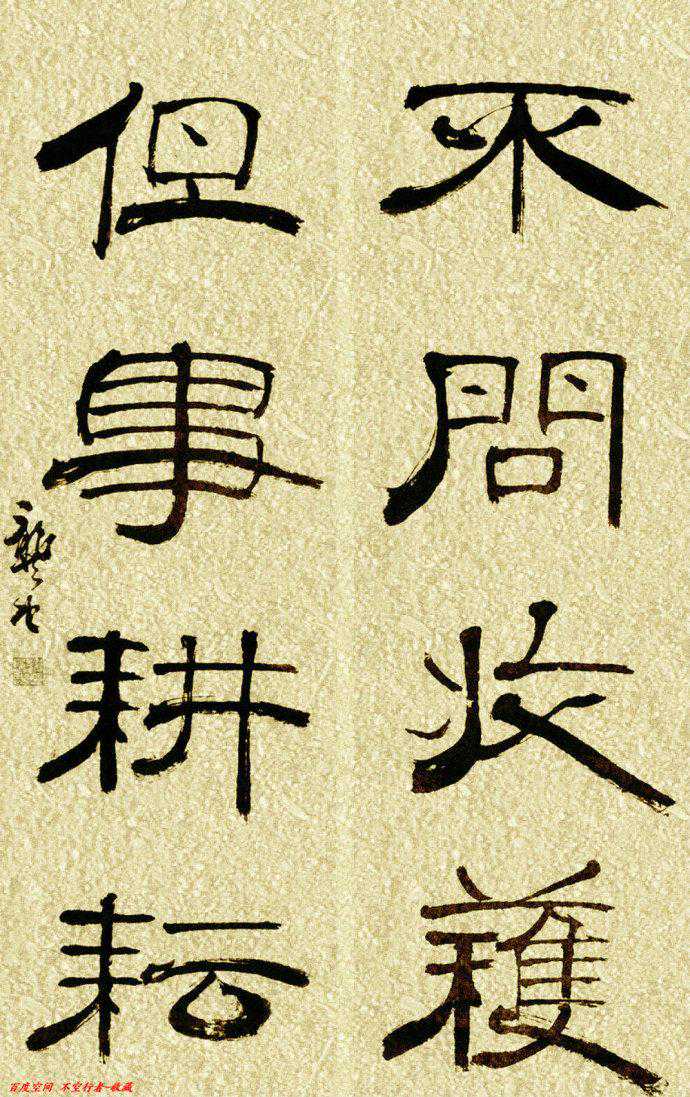 不問收穫
但事耕耘
龔望
百度空间 不空行者-收藏